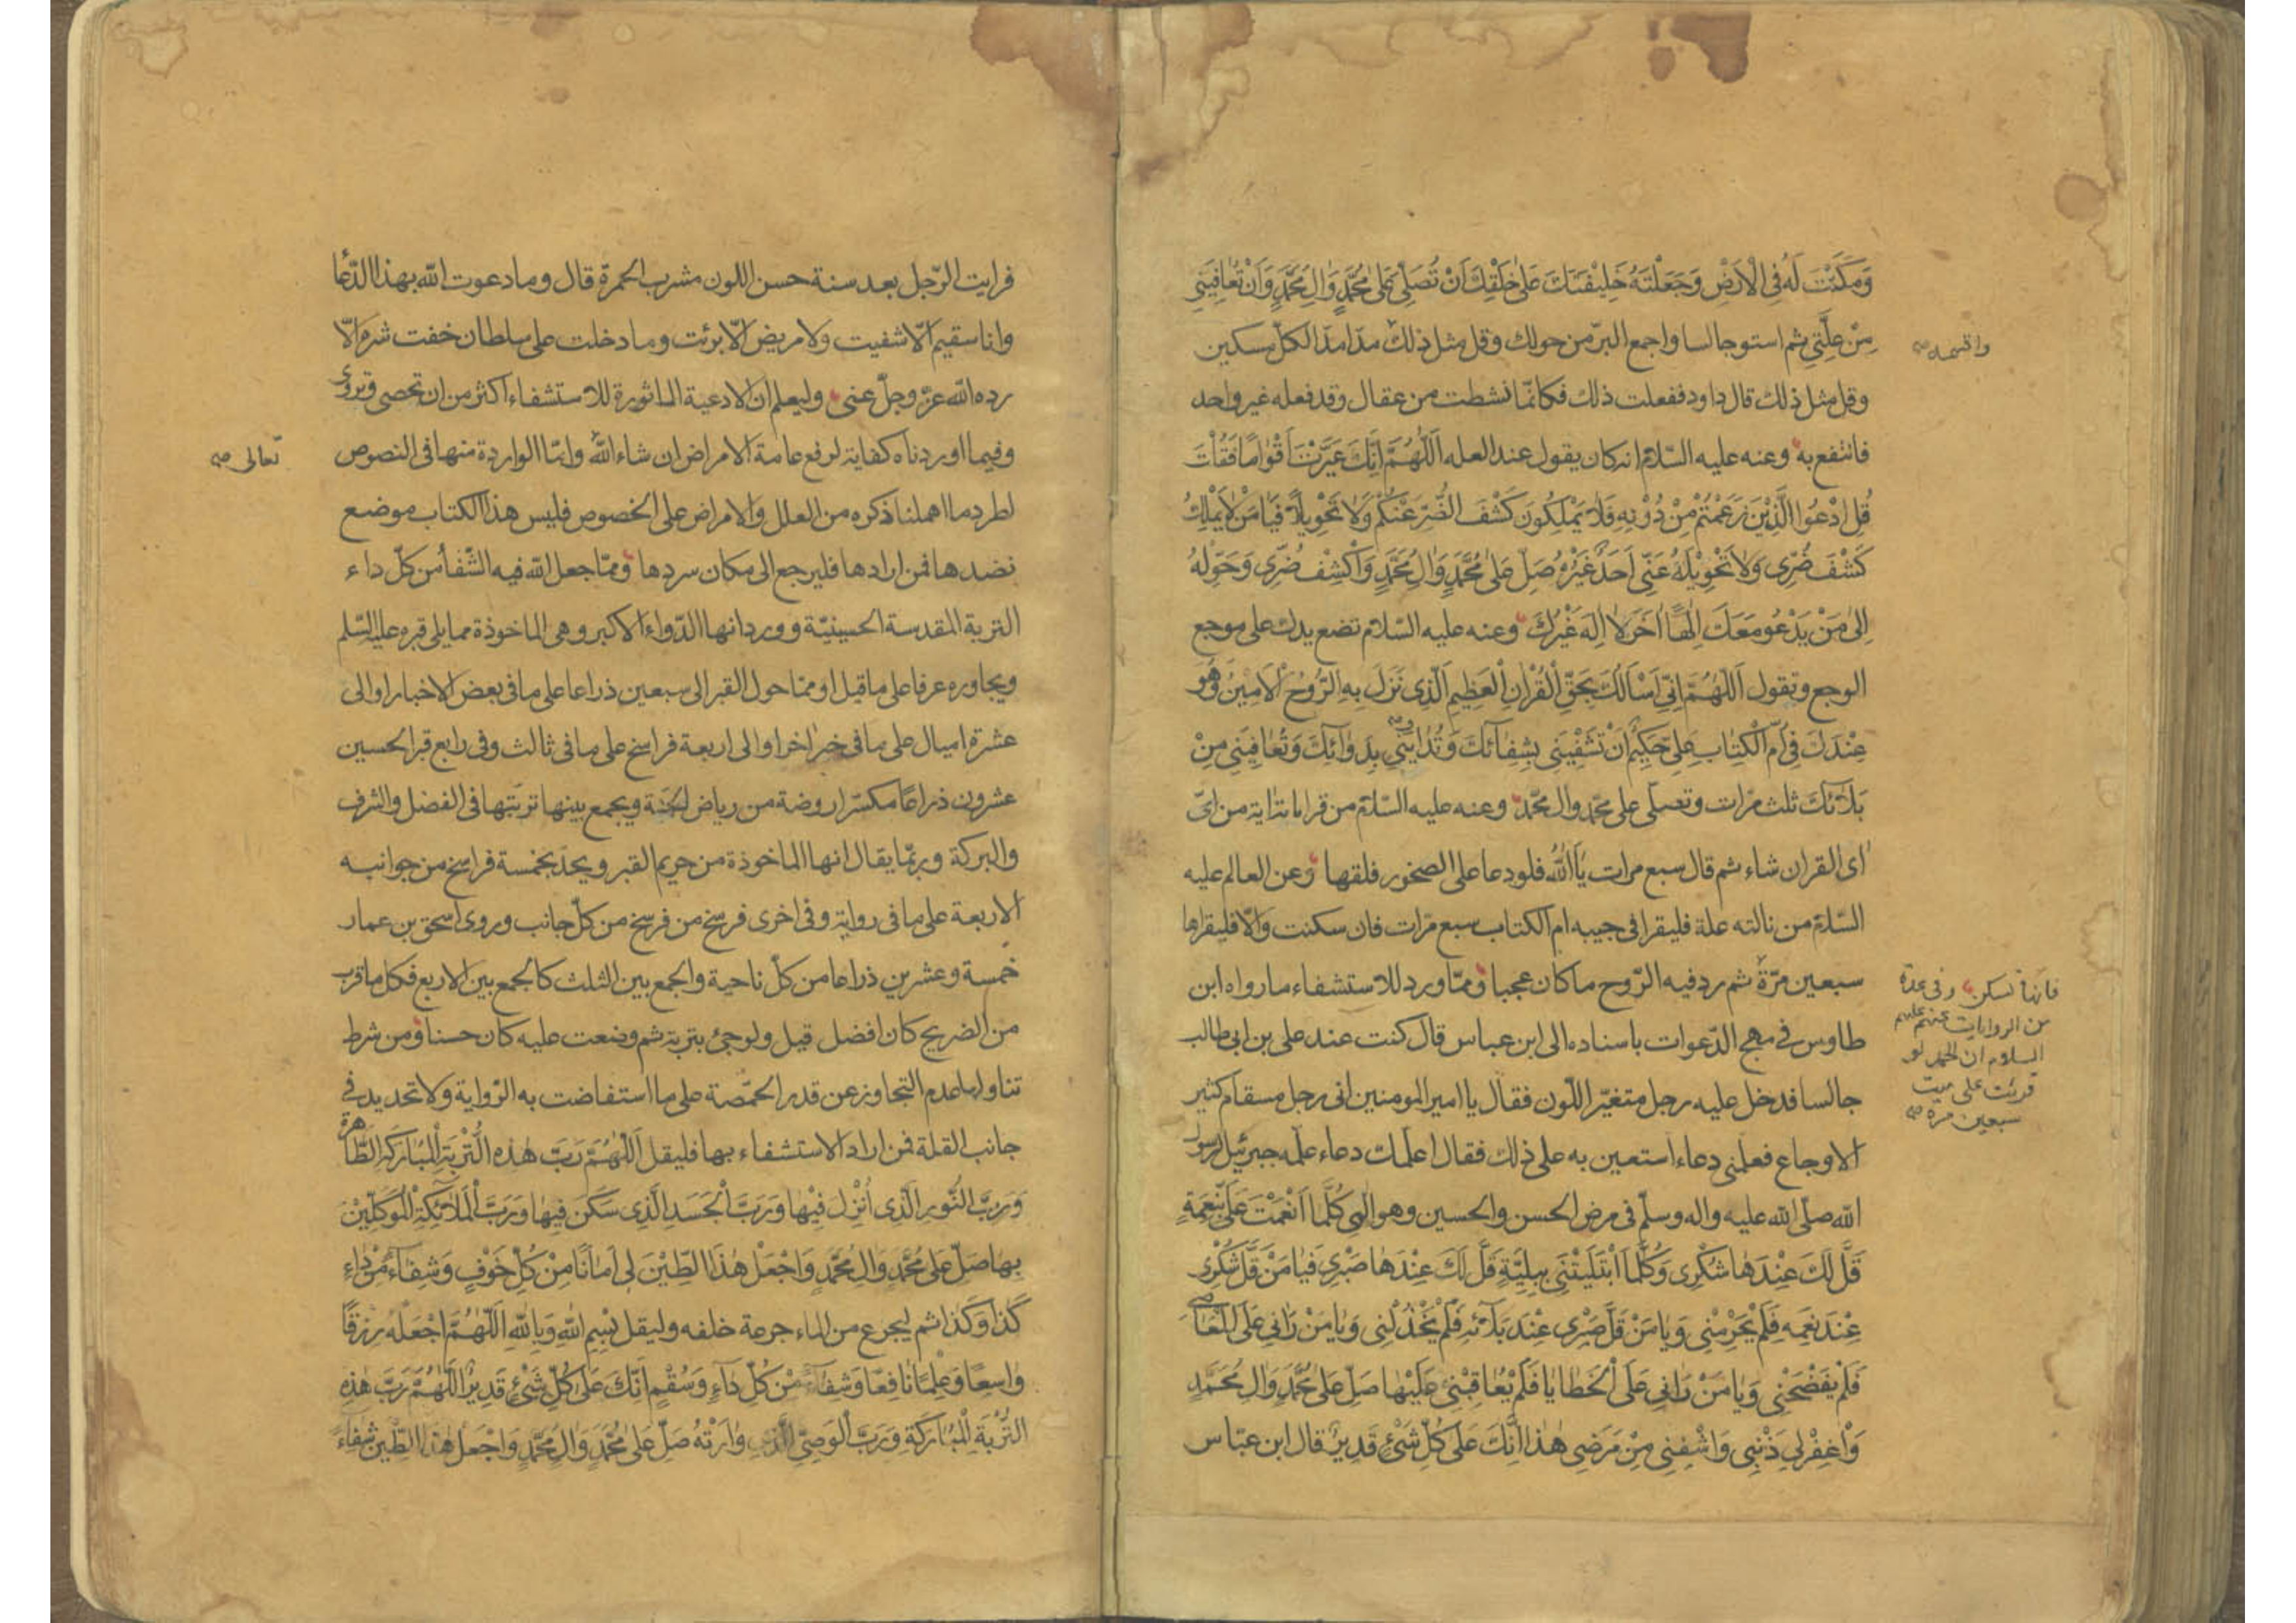 وَمَكَّنْتَ لَهُ فِي الْاَرْضِ وَجَعَلْتَهُ خَلِيْفَتَكَ عَلىٰ خَلْقِكَ اَنْ تُصَلِّيَ عَلىٰ مُحَمَّدٍ وَاٰلِ مُحَمَّدٍ وَاَنْ تُعٰافِيَنِي
مِنْ عِلَّتِي ثم استو جالسا واجمع البرّ من حولك وقل مثل ذلك مدّا مدّا لكل مسكين
واقسمه صح
وقل مثل ذلك قال داود ففعلت ذلك فكانّما نشطت من عقال وقد فعله غير واحد
فانتفع به وعنه عليه السّلام انه كان يقول عند العله اَللّٰهُمَّ اِنَّكَ عَيَّرْتَ اَقْوٰامًا فَقُلْتَ
قُلِ ادْعُوا الَّذِيْنَ زَعَمْتُمْ مِنْ دُوْنِهِ فَلاٰ يَمْلِكُونَ كَشْفَ الضُّرِّ عَنْكُمْ وَلاٰ تَحْوِيلاً فَيٰا مَنْ لاٰ يَمْلِكُ
كَشْفَ ضُرِّي وَلاٰ تَحْوِيْلَهُ عَنِّي اَحَدٌ غَيْرُهُ صَلِّ عَلىٰ مُحَمَّدٍ وَاٰلِ مُحَمَّدٍ وَاكْشِفْ ضُرِّي وَحَوِّلْهُ
اِلىٰ مَنْ يَدْعُو مَعَكَ اِلٰهًا اٰخَرَ لاٰ اِلٰهَ غَيْرُكَ وعنه عليه السّلام تضع يدك على موجع
الوجع وتقول اَللّٰهُمَّ اِنِّي اَسْاَلُكَ بِحَقِّ الْقُرْاٰنِ الْعَظِيمِ الَّذِي نَزَلَ بِهِ الرُّوْحُ الْاَمِيْنُ وَهُوَ
عِنْدَكَ فِي اُمِّ الْكِتٰابِ عَلِيٌّ حَكِيْمٌ اَنْ تَشْفِيَنِي بِشِفٰائِكَ وَتُدٰاوِيَنِي بِدَوٰائِكَ وَتُعٰافِيَنِي مِنْ
بَلاٰئِكَ ثلث مرّات وتصلّى على محمّد وال محمّد وعنه عليه السّلام من قرا ماة اية من ايّ
اى القران شاء ثم قال سبع مرات يٰا اَللّٰهُ فلو دعا على الصخور فلقها وعن العالم عليه
السّلام من نالته علة فليقرا فى جيبه ام الكتاب سبع مرّات فان سكنت والّا فليقراها
سبعين مرّة ثم رد فيه الرّوح ما كان عجبا وممّا ورد للاستشفاء ما رواه ابن
فانها تسكن وفى عدة
من الروايات عنهم عليهم
السلام ان الحمد لو
قرئت على ميت
سبعين مرة صح
طاوس فى مهج الدّعوات باسناده الى ابن عباس قال كنت عند على بن ابى طالب
جالسا فدخل عليه رجل متغيّر اللّون فقال يا امير المومنين انى رجل مسقام كثير
الاوجاع فعلمنى دعاء استعين به على ذلك فقال اعلمك دعاء علمه جبرئيل لرسول
الله صلّى الله عليه واله وسلّم فى مرض الحسن والحسين وهو اِلٰهِي كُلَّمٰا اَنْعَمْتَ عَلَيَّ بِنِعْمَةٍ
قَلَّ لَكَ عِنْدَهٰا شُكْرِي وَكُلَّمَا ابْتَلَيْتَنِي بِبَلِيَّةٍ قَلَّ لَكَ عِنْدَهٰا صَبْرِي فَيٰا مَنْ قَلَّ شُكْرِي
عِنْدَ نِعَمِهِ فَلَمْ يَحْرِمْنِي وَيٰا مَنْ قَلَّ صَبْرِي عِنْدَ بَلاٰئِهِ فَلَمْ يَخْذُلْنِي وَيٰا مَنْ رَاٰنِي عَلَى الْمَعٰاصِي
فَلَمْ يَفْضَحْنِي وَيٰا مَنْ رَاٰنِي عَلَى الْخَطٰايٰا فَلَمْ يُعٰاقِبْنِي عَلَيْهٰا صَلِّ عَلىٰ مُحَمَّدٍ وَاٰلِ مُحَمَّدٍ
وَاغْفِرْ لِي ذَنْبِي وَاشْفِنِي مِنْ مَرَضِي هٰذٰا اِنَّكَ عَلىٰ كُلِّ شَيْءٍ قَدِيْرٌ قال ابن عبّاس
فرايت الرّجل بعد سنة حسن اللون مشرب الحمرة قال وما دعوت الله بهذا الدّعا
وانا سقيم الّا شفيت ولا مريض الّا برئت وما دخلت على سلطان خفت شره الّا
رده الله عزّ وجلّ عنى وليعلم ان الادعية الماثورة للاستشفاء اكثر من ان تحصى وتروى
وفيما اوردناه كفاية لرفع عامة الامراض ان شاء الله وامّا الواردة منها فى النصوص
تعالى صح
لطرد ما اهملنا ذكره من العلل والامراض على الخصوص فليس هذا الكتاب موضع
نضدها فمن ارادها فليرجع الى مكان سردها وممّا جعل الله فيه الشّفأ من كلّ داء
التربة المقدسة الحسينيّة وورد انها الدّواء الاكبر وهى الماخوذة مما يلى قبره عليه السّلم
ويجاوره عرفا على ما قيل او ممّا حول القبر الى سبعين ذراعا على ما فى بعض الاخبار او الى
عشرة اميال على ما فى خبر اخر او الى اربعة فراسخ على ما فى ثالث وفى رابع قبر الحسين
عشرون ذراعًا مكسّرا روضة من رياض الجنّة ويجمع بينها ترتبها فى الفضل والشرف
والبركة وربّما يقال انها الماخوذة من حريم القبر ويحدّ بخمسة فراسخ من جوانبه
الاربعة على ما فى رواية وفى اخرى فرسخ من فرسخ من كلّ جانب وروى اسحق بن عمار
خمسة وعشرين ذراعا من كلّ ناحية والجمع بين الثلث كالجمع بين الاربع فكل ما قرب
من الضريح كان افضل قيل ولو جئ بتربة ثم وضعت عليه كان حسنا ومن شرط
تناولها عدم التجاوز عن قدر الحمّصة على ما استفاضت به الرّواية ولا تحديد فى
جانب القلة فمن اراد الاستشفاء بها فليقل اَللّٰهُمَّ رَبَّ هٰذِهِ التُّرْبَةِ الْمُبٰارَكَةِ الطّٰاهِرَةِ
وَرَبَّ النُّورِ الَّذِي اُنْزِلَ فِيْهٰا وَرَبَّ الْجَسَدِ الَّذِي سَكَنَ فِيهٰا وَرَبَّ الْمَلاٰئِكَةِ الْمُوَكَّلِيْنَ
بِهٰا صَلِّ عَلىٰ مُحَمَّدٍ وَاٰلِ مُحَمَّدٍ وَاجْعَلْ هٰذَا الطِّيْنَ لِي اَمٰانًا مِنْ كُلِّ خَوْفٍ وَشِفٰاءً مِنْ دٰاءِ
كَذٰا وَكَذٰا ثم ليجرع من الماء جرعة خلفه وليقل بِسْمِ اللّٰهِ وَبِاللّٰهِ اَللّٰهُمَّ اجْعَلْهُ رِزْقًا
وٰاسِعًا وَعِلْمًا نٰافِعًا وَشِفٰاءً مِنْ كُلِّ دٰاءٍ وَسُقْمٍ اِنَّكَ عَلىٰ كُلِّ شَيْءٍ قَدِيْرٌ اَللّٰهُمَّ رَبَّ هٰذِهِ
التُّرْبَةِ الْمُبٰارَكَةِ وَرَبَّ الْوَصِيِّ الَّذِي وٰارَتْهُ صَلِّ عَلىٰ مُحَمَّدٍ وَاٰلِ مُحَمَّدٍ وَاجْعَلْ هٰذَا الطِّيْنَ شِفٰاءً